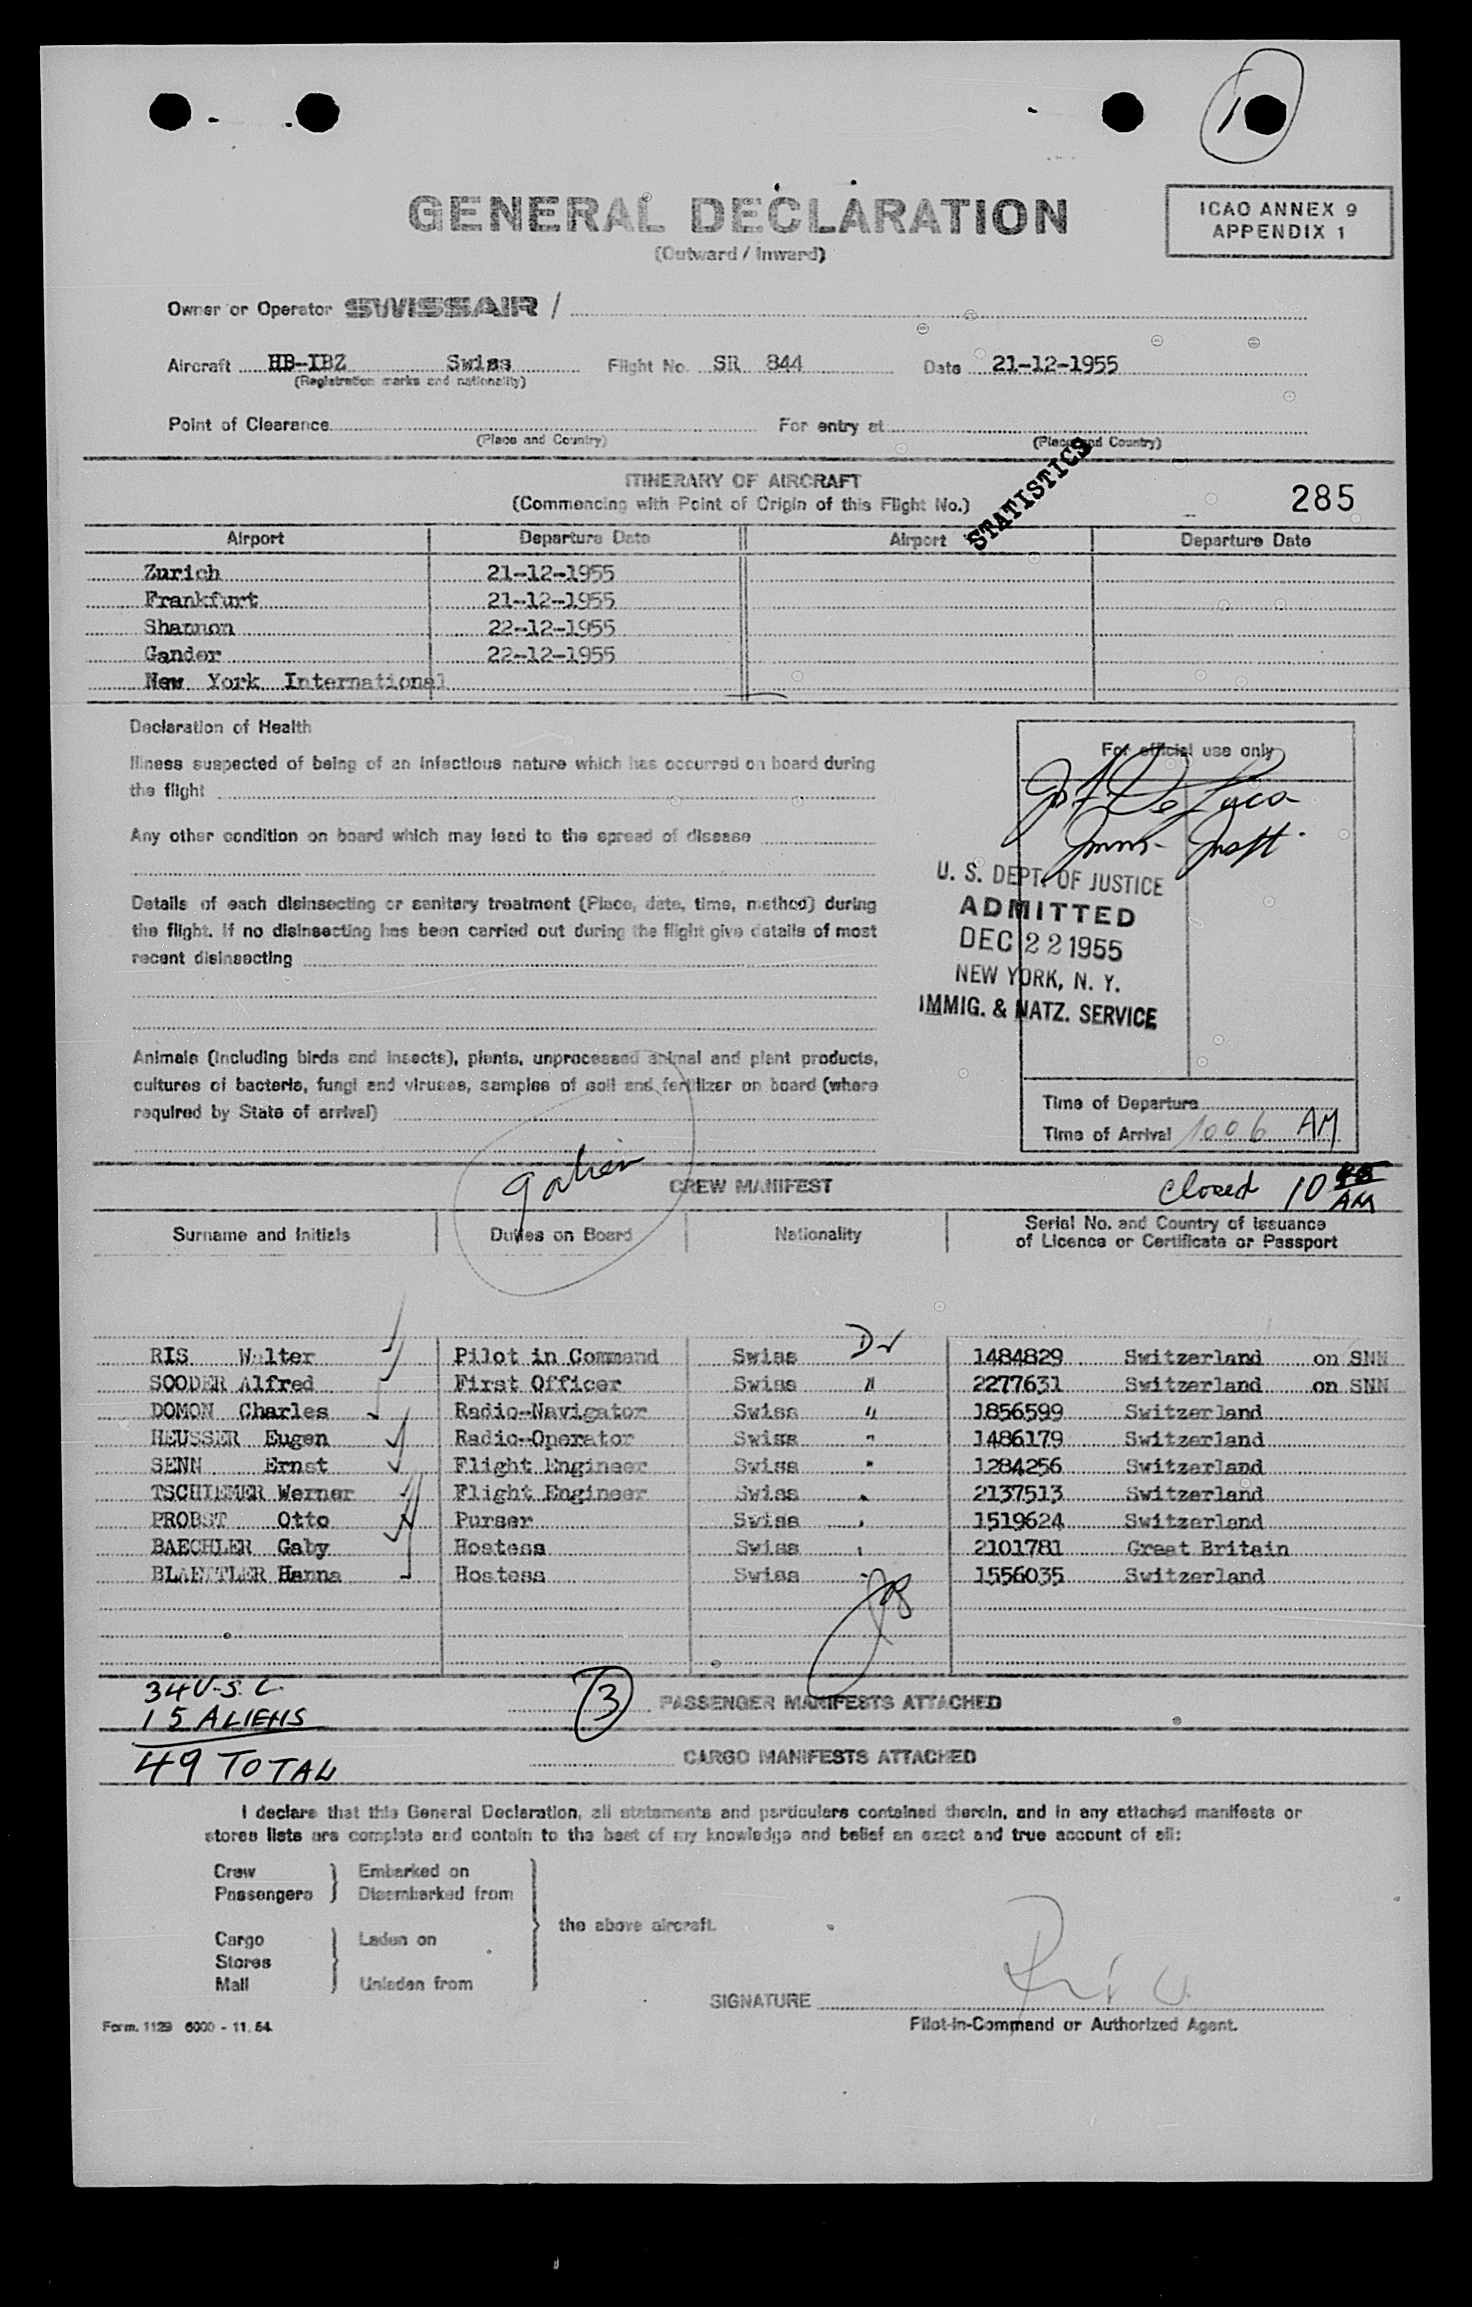 1
GENERAL DECLARATION
(Outward / Inward)
ICAO ANNEX 9
APPENDIX 1
Owner or Operator SWISSAIR /
Aircraft HB-IBZ Swiss Flight No. SR 844 Date 21-12-1955
(Registration marks and nationality)
Point of Clearance For entry at
(Place and Country) (Place and Country)
STATISTICS
ITINERARY OF AIRCRAFT
(Commencing with Point of Origin of this Flight No.)
285
Airport Departure Date Airport Departure Date
Zurich 21-12-1955
Frankfurt 21-12-1955
Shannon 22-12-1955
Gander 22-12-1955
New York International
Declaration of Health
Illness suspected of being of an infectious nature which has occurred on board during
the flight
Any other condition on board which may lead to the spread of disease
Details of each disinsecting or sanitary treatment (Place, date, time, method) during
the flight. If no disinsecting has been carried out during the flight give details of most
recent disinsecting
Animals (including birds and insects), plants, unprocessed animal and plant products,
cultures of bacteria, fungi and viruses, samples of soil and fertilizer on board (where
required by State of arrival)
For official use only
De Luca
Imm. Inspt.
U. S. DEPT. OF JUSTICE
ADMITTED
DEC 22 1955
NEW YORK, N. Y.
IMMIG. & NATZ. SERVICE
Time of Departure
Time of Arrival 1006 AM
CREW MANIFEST
closed 10 AM
Surname and Initials Duties on Board Nationality Serial No. and Country of issuance
of Licence or Certificate or Passport
RIS Walter Pilot in Command Swiss 1484829 Switzerland on SNN
SOODER Alfred First Officer Swiss " 2277631 Switzerland on SNN
DOMON Charles Radio-Navigator Swiss " 1856599 Switzerland
HEUSSER Eugen Radio-Operator Swiss " 1486179 Switzerland
SENN Ernst Flight Engineer Swiss " 1284256 Switzerland
TSCHIEMER Werner Flight Engineer Swiss 2137513 Switzerland
PROBST Otto Purser Swiss 1519624 Switzerland
BAECHLER Gaby Hostess Swiss 2101781 Great Britain
BLAETTLER Hanna Hostess Swiss 1556035 Switzerland
34 U.S.C.
15 ALIENS
49 TOTAL
3 PASSENGER MANIFESTS ATTACHED
CARGO MANIFESTS ATTACHED
I declare that this General Declaration, all statements and particulars contained therein, and in any attached manifests or
stores lists are complete and contain to the best of my knowledge and belief an exact and true account of all:
Crew Embarked on
Passengers Disembarked from
the above aircraft.
Cargo Laden on
Stores
Mail Unladen from
SIGNATURE
Pilot-in-Command or Authorized Agent.
Form. 1129 6000 - 11. 54.